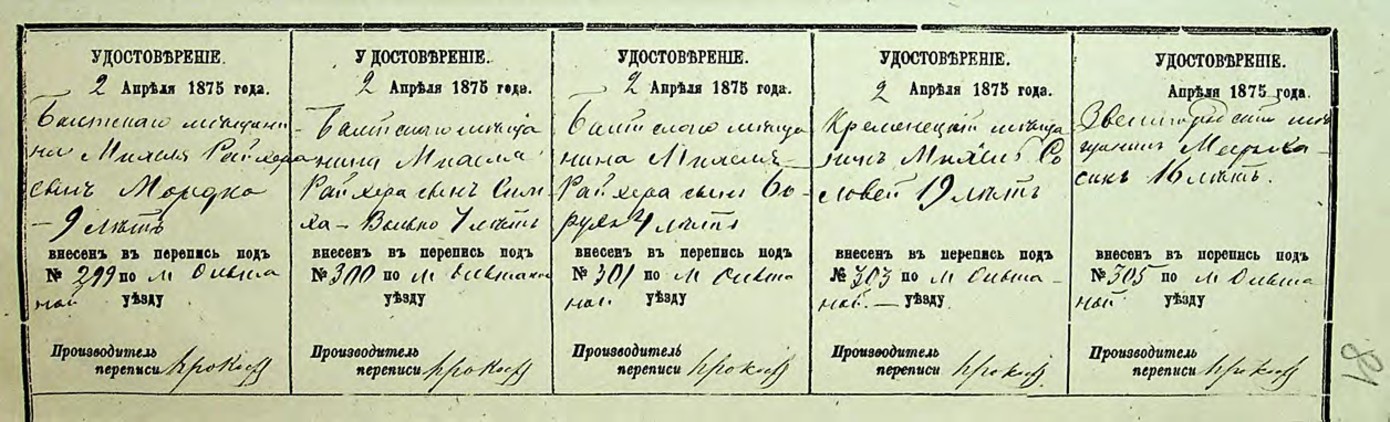 УДОСТОВѢРЕНІЕ.
2 Апрѣля 1875 года.
Балтскаго мѣщани-
на Михеля Райхера
сынъ Мордко
— 9 лѣтъ
внесенъ въ перепись подъ
№ 299 по м Ольша
ной уѣзду
Производитель
переписи
УДОСТОВѢРЕНІЕ.
2 Апрѣля 1875 года.
Балтского мѣща
нина
Райхера сынъ Сим-
ха — Волько 7 лѣтъ
внесенъ въ перепись подъ
№ 300 по м Ольшаной
уѣзду
Производитель
переписи
УДОСТОВѢРЕНІЕ.
2 Апрѣля 1875 года.
Балтского мѣща
нина
Райхера сынъ Бо-
рухъ 4 лѣтъ
внесенъ въ перепись подъ
№ 301 по м Ольша
ной уѣзду
Производитель
переписи
УДОСТОВѢРЕНІЕ.
2 Апрѣля 1875 года.
Кременецкій мѣща
нинъ Михель Со
ловей 19 лѣтъ
внесенъ въ перепись подъ
№ 303 по м Ольша-
ной. — уѣзду
Производитель
переписи
УДОСТОВѢРЕНІЕ.
Апрѣля 1875 года.
мѣ
щанинъ
16 лѣтъ.
внесенъ въ перепись подъ
№ 305 по м Ольша
ной уѣзду
Производитель
переписи
18